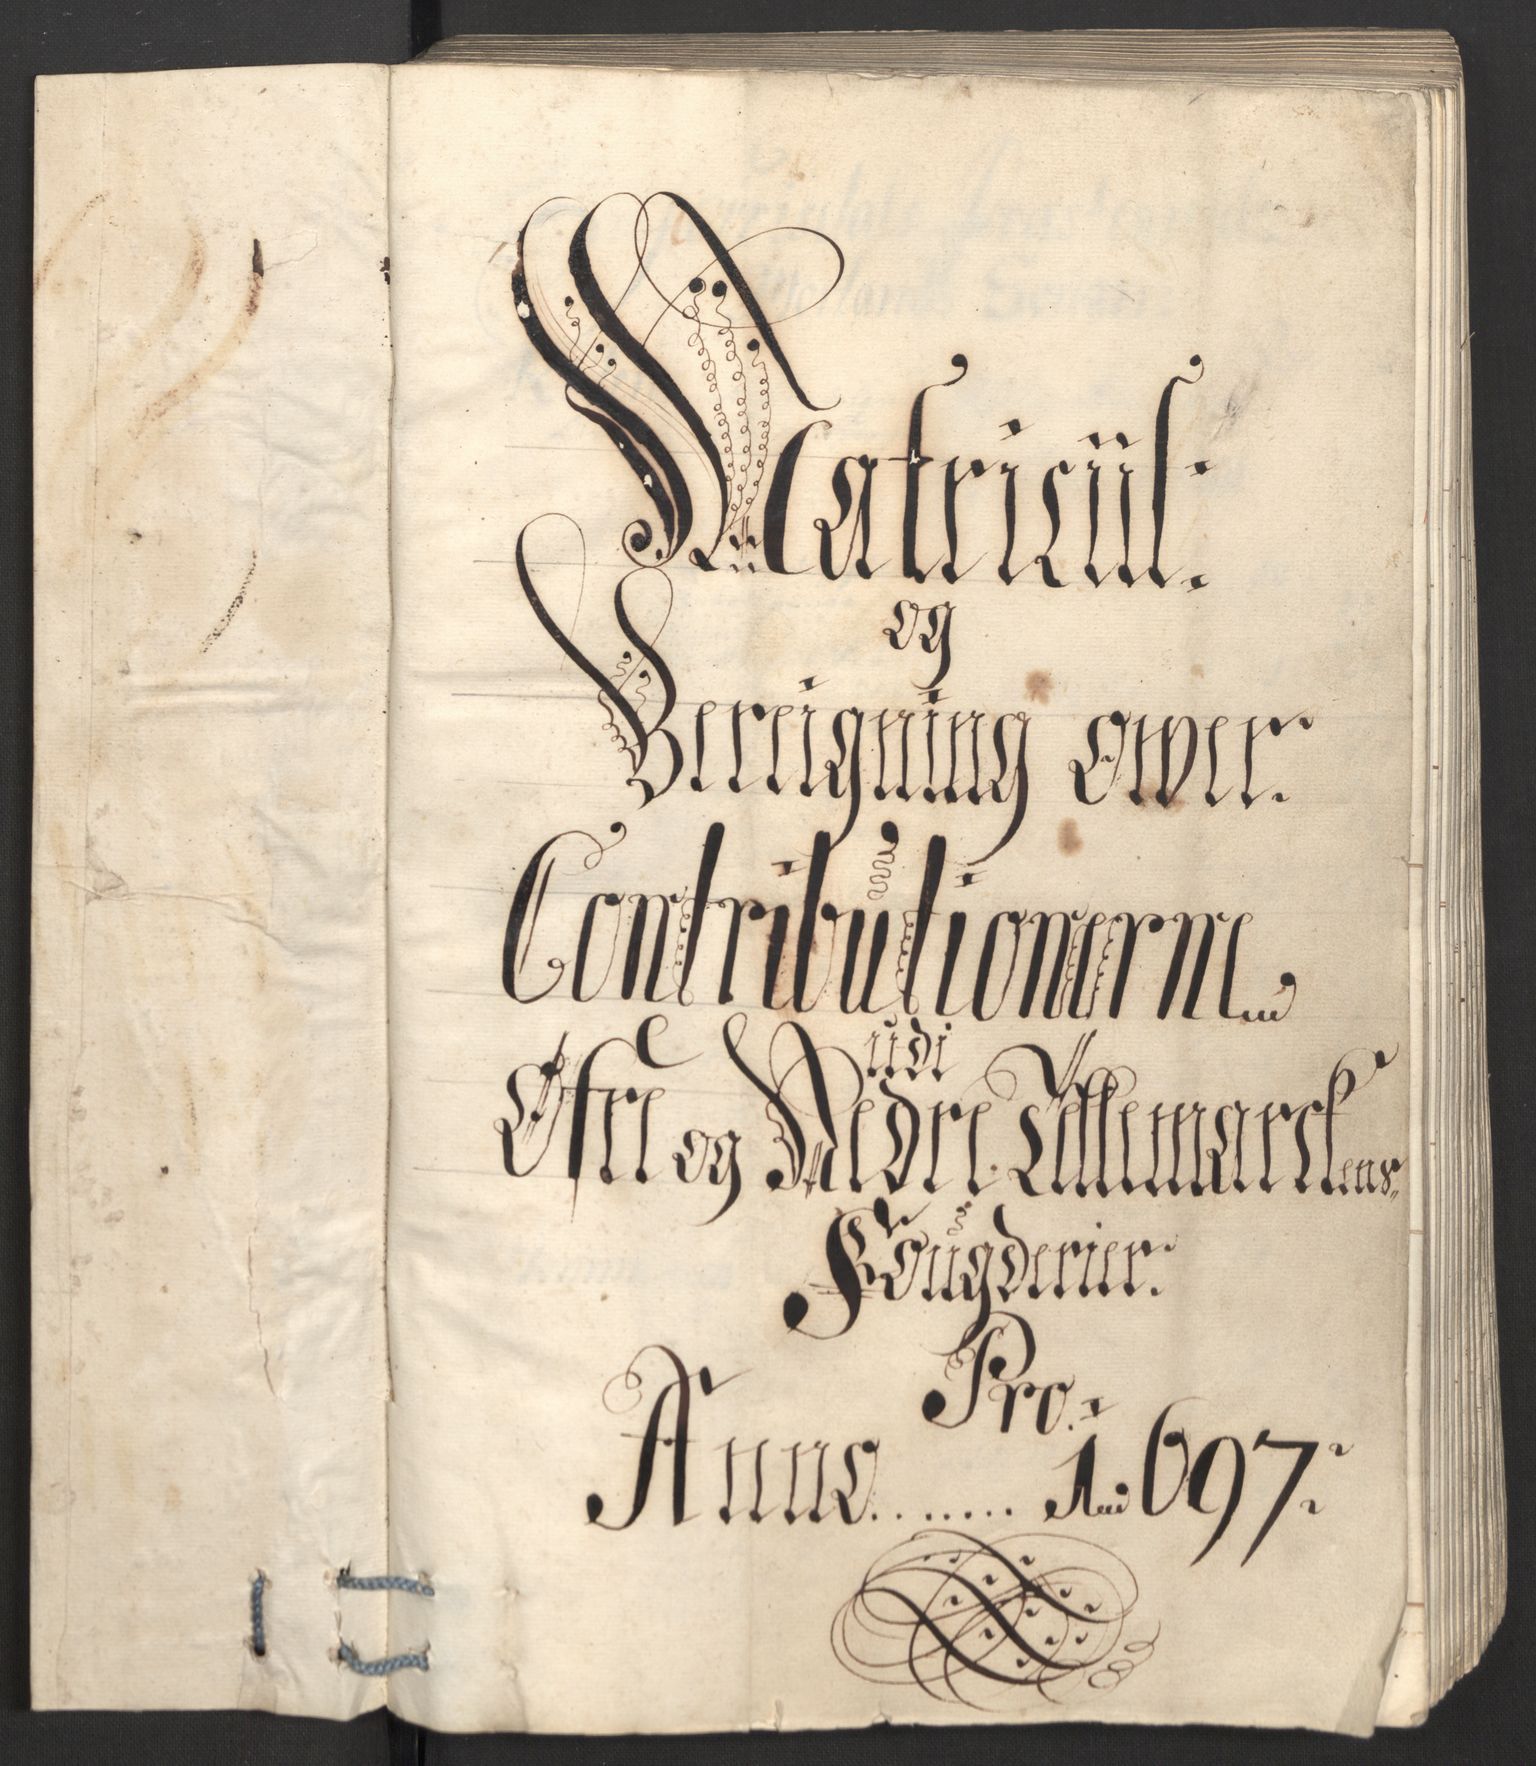 Matricül:
og
Bereigning ower:
Contributionerne
üdi
Øfre og Nedre Tellemarckens
Fougderier:
Pro:
Anno ........ 1697: